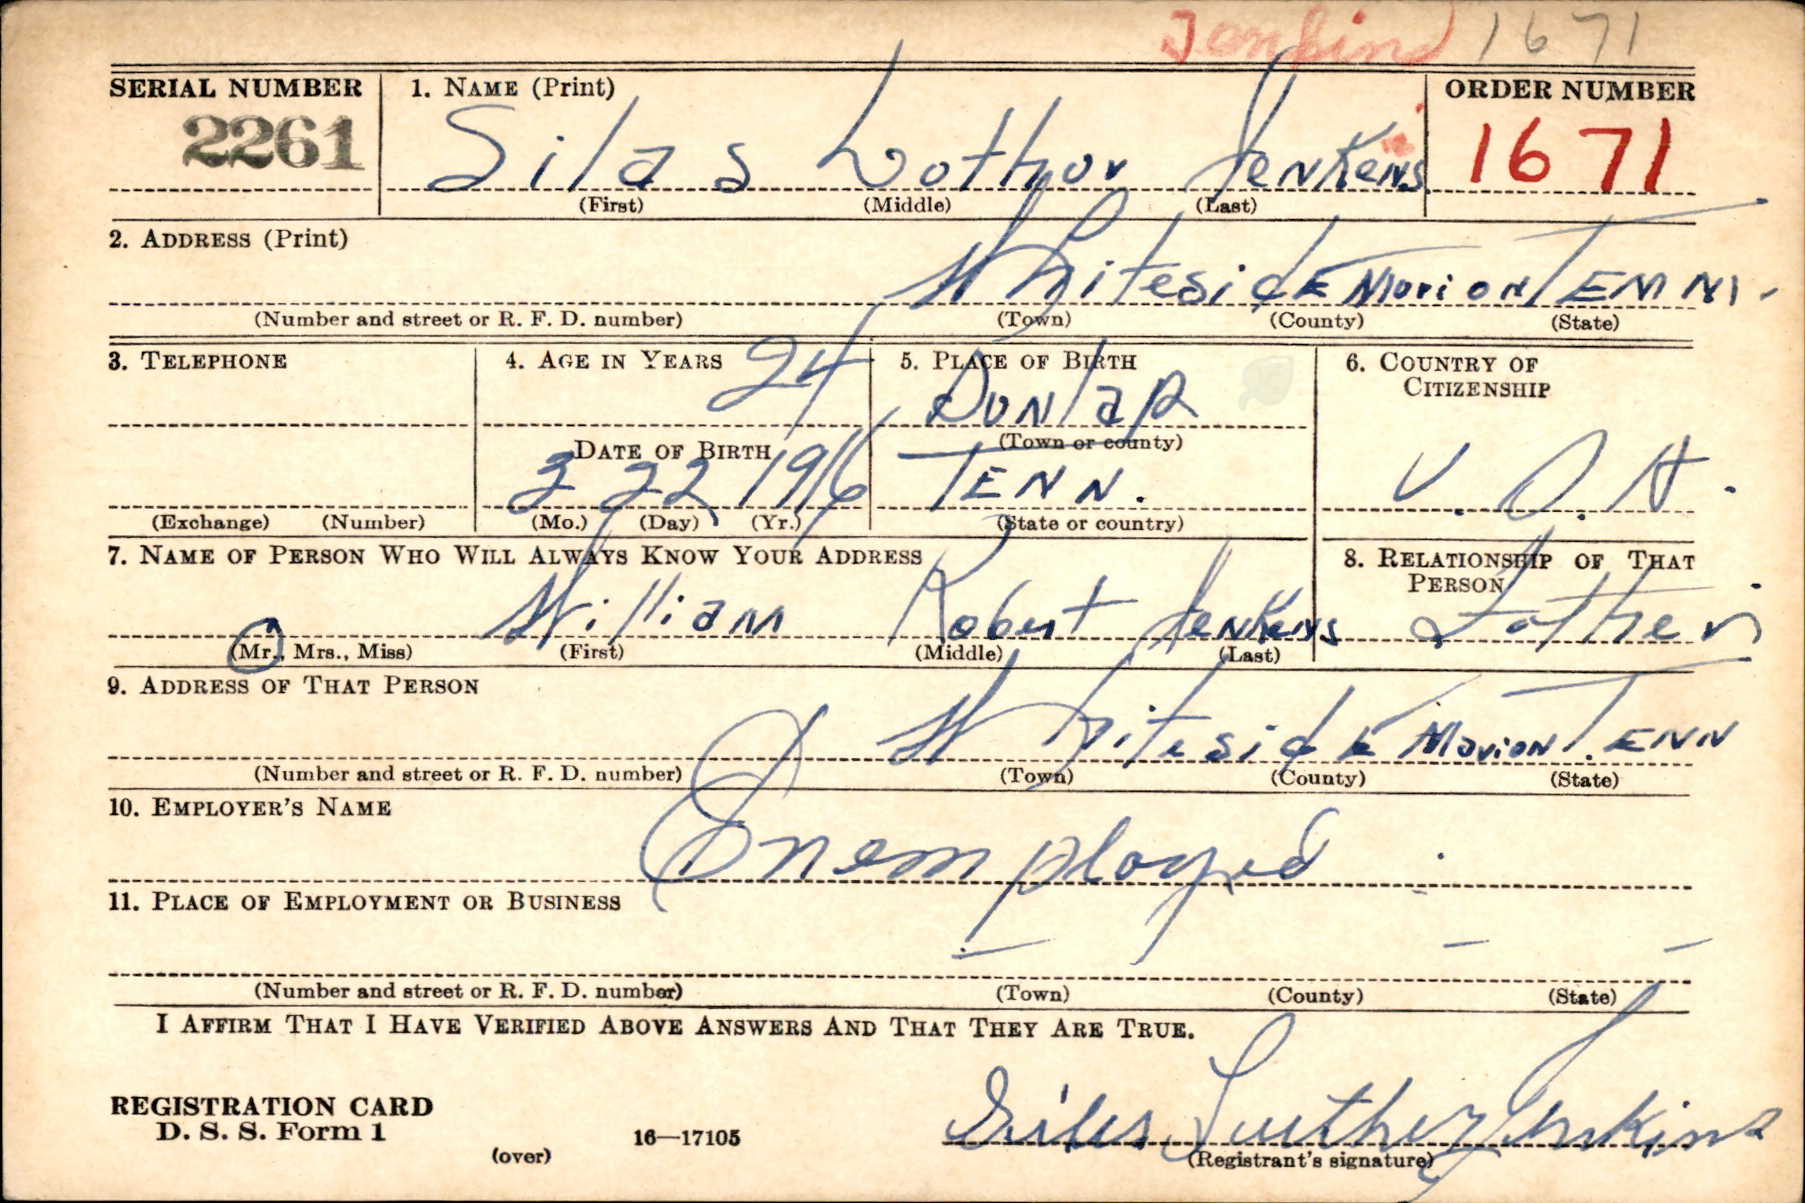 Jenkins 1671
SERIAL NUMBER 1. NAME (Print) ORDER NUMBER
2261 Silas Lothor Jenkens 1671
(First) (Middle) (Last)
2. ADDRESS (Print)
Whiteside Marion TENN.
(Number and street or R. F. D. number) (Town) (County) (State)
3. TELEPHONE 4. AGE IN YEARS 24 5. PLACE OF BIRTH 6. COUNTRY OF CITIZENSHIP
Dunlap
DATE OF BIRTH (Town or county)
22 1916 TENN. U.S.A.
(Exchange) (Number) (Mo.) (Day) (Yr.) (State or country)
7. NAME OF PERSON WHO WILL ALWAYS KNOW YOUR ADDRESS 8. RELATIONSHIP OF THAT PERSON
William Robert Jenkens Father
(Mr., Mrs., Miss) (First) (Middle) (Last)
9. ADDRESS OF THAT PERSON
Whiteside Marion TENN
(Number and street or R. F. D. number) (Town) (County) (State)
10. EMPLOYER'S NAME
Unemployed
11. PLACE OF EMPLOYMENT OR BUSINESS
— — —
(Number and street or R. F. D. number) (Town) (County) (State)
I AFFIRM THAT I HAVE VERIFIED ABOVE ANSWERS AND THAT THEY ARE TRUE.
REGISTRATION CARD
D. S. S. Form 1 16—17105 Silas Luther Jenkins
(over) (Registrant's signature)